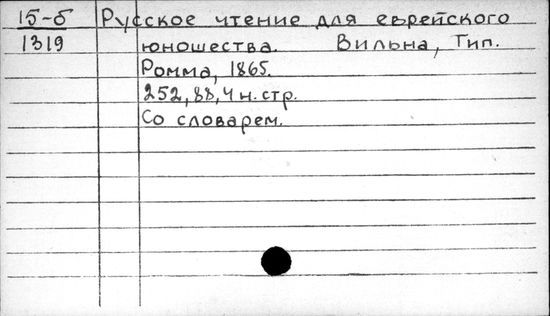 15-б Русское чтение для еврейского
1319 юношества. Вильна, Тип.
Ромма, 1865.
252, 88, 4 н. стр.
Со словарем.